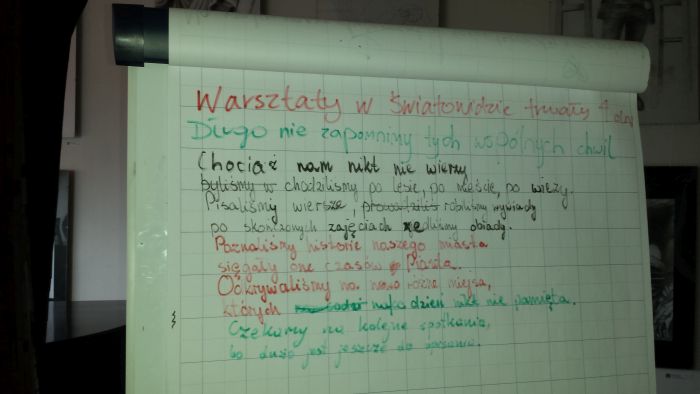 Warsztaty w Światowidzie trwały 4 dny
Długo nie zapomnimy tych wspólnych chwil
Chociaż nam nikt nie wierzy
byliśmy w chodziliśmy po lesie, po mieście, po wieży.
Pisaliśmy wiersze, prowadziliś robiliśmy wywiady
po skończonych zajęciach jedliśmy obiady.
Poznaliśmy historie naszego miasta
sięgały one czasów Piasta.
Odkrywaliśmy na nowo różne miejsa,
których dzień nikt nie pamięta.
Czekamy na kolejne spotkania,
bo dużo jest jeszcze do